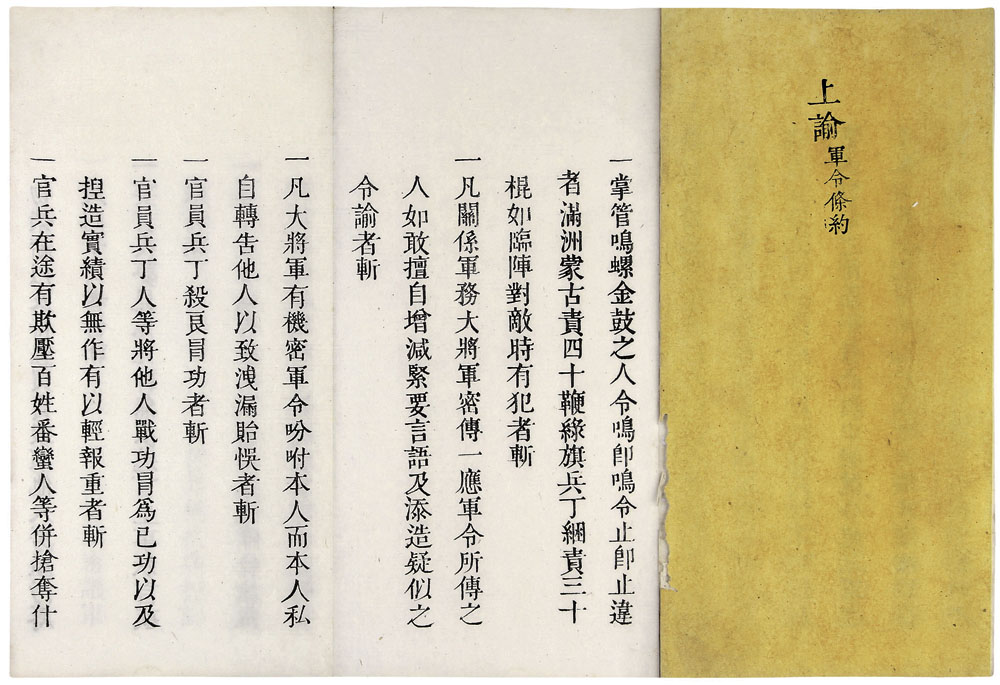 上諭軍令條約
一掌管鳴螺金鼓之人令鳴卽鳴令止卽止違
者滿洲蒙古責四十鞭綠旗兵丁綑責三十
棍如臨陣對敵時有犯者斬
一凡關係軍務大將軍密傳一應軍令所傳之
人如敢擅自增減緊要言語及添造疑似之
令諭者斬
一凡大將軍有機密軍令吩咐本人而本人私
自轉告他人以致洩漏貽悞者斬
一官員兵丁殺良冐功者斬
一官員兵丁人等將他人戰功冐爲已功以及
揑造實績以無作有以輕報重者斬
一官兵在途有欺壓百姓番蠻人等併搶奪什